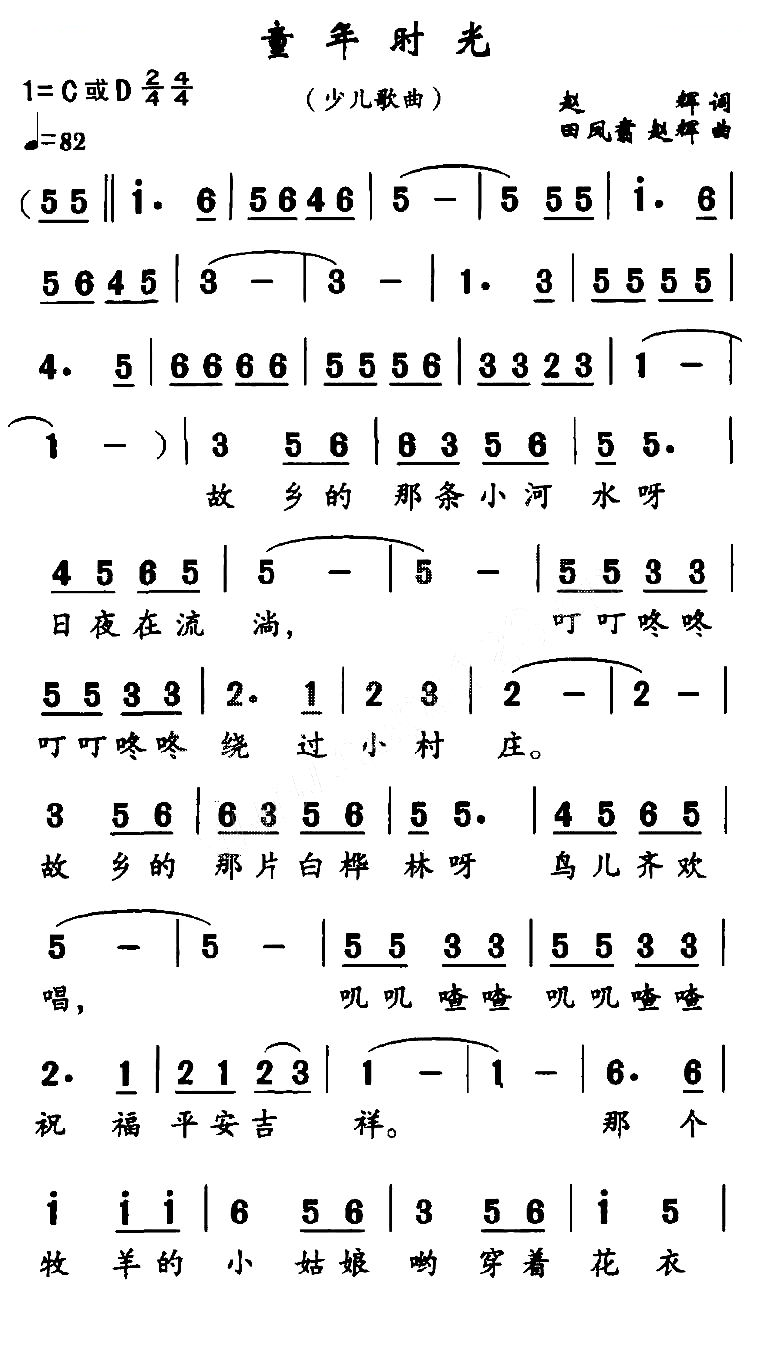 童年时光
1=C或D 2/4 4/4
(少儿歌曲)
赵 辉 词
♩=82
田凤翥 赵辉 曲
(5 5 ‖ i· 6 | 5 6 4 6 | 5 - | 5 5 5 | i· 6 |
5 6 4 5 | 3 - | 3 - | 1· 3 | 5 5 5 5 |
4· 5 | 6 6 6 6 | 5 5 5 6 | 3 3 2 3 | 1 - |
1 - ) | 3 5 6 | 6 3 5 6 | 5 5· |
故 乡的 那条小河 水呀
4 5 6 5 | 5 - | 5 - | 5 5 3 3 |
日夜在流 淌, 叮叮咚咚
5 5 3 3 | 2· 1 | 2 3 | 2 - | 2 - |
叮叮咚咚 绕 过 小 村 庄。
3 5 6 | 6 3 5 6 | 5 5· | 4 5 6 5 |
故 乡的 那片白桦 林呀 鸟儿齐欢
5 - | 5 - | 5 5 3 3 | 5 5 3 3 |
唱, 叽叽喳喳 叽叽喳喳
2· 1 | 2 1 2 3 | 1 - | 1 - | 6· 6 |
祝 福 平安吉 祥。 那 个
i i i | 6 5 6 | 3 5 6 | i 5 |
牧 羊的 小 姑娘 哟 穿着 花 衣